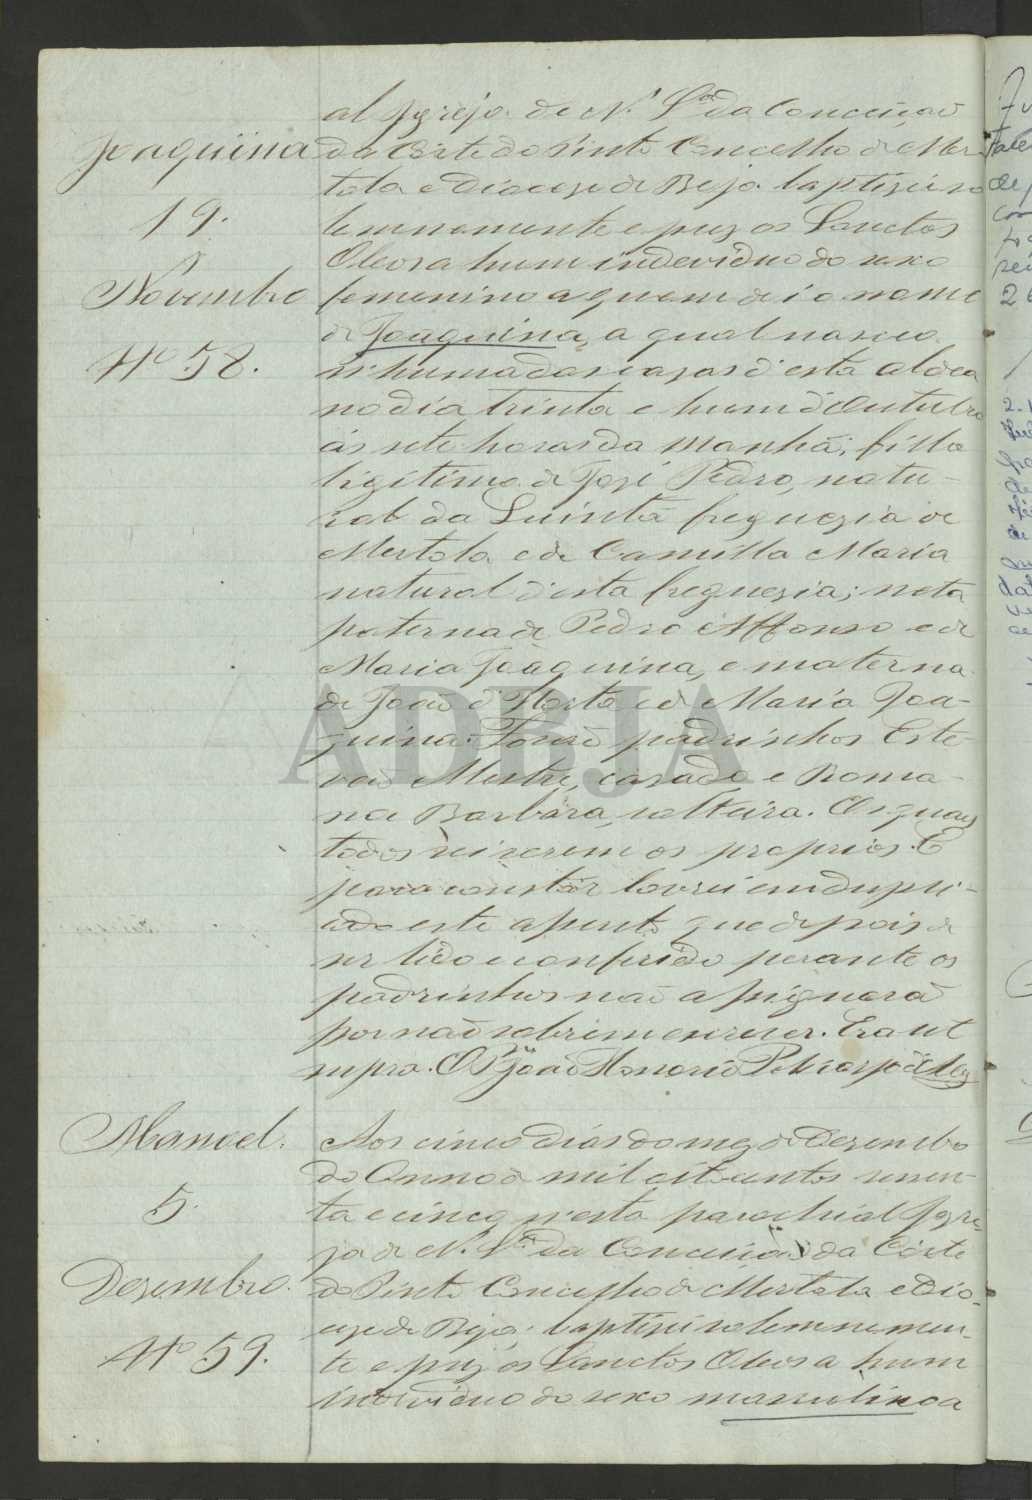 Joaquina
19.
Novembro
Nº 58.
al Igreja de N. Srª da Conceição
da Côrte do Pinto Concelho de Mer-
tola e Diocese de Beja baptizei so
lemnemente e puz os Sanctos
Oleos a hum individuo do sexo
femenino a quem dei o nome
de Joaquina, a qual nasceo
n'huma das casas d'esta aldea
no dia trinta e hum d'Outubro
ás sete horas da manhã; filha
legitima de José Pedro, natu-
ral da Quinta freguezia de
Mertola e de Camilla Maria
natural d'esta freguezia; neta
paterna de Pedro Affonso e de
Maria Joaquina, e materna
de João d'Horta e de Maria Joa-
quina. Forão padrinhos Este-
vão Mestre, casado e Roma-
na Barbara, solteira. Os quaes
todos sei serem os proprios. E
para constar lavrei em dupli-
cado este assento que depois de
ser lido e conferido perante os
padrinhos não assignarão
por não saberem escrever. Era ut
supra. O Pr. João Honorio
Manoel.
5.
Dezembro.
Nº 59.
Aos cinco dias do mez de Dezembro
do Anno de mil oitocentos sessen-
ta e cinco n'esta parochial Igre-
ja de N. Srª da Conceição da Côrte
do Pinto Concelho de Mertola e Dio-
cese de Beja baptizei solemnemen-
te e puz os Sanctos Oleos a hum
individuo do sexo masculino a
ADBJA